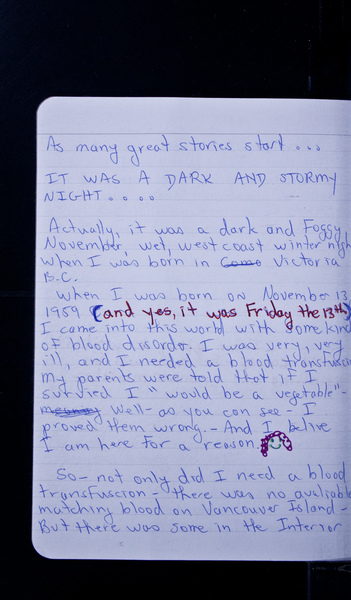 As many great stories start ...
IT WAS A DARK AND STORMY
NIGHT....
Actually, it was a dark and Foggy,
November, wet, west coast winter nigh
when I was born in Como Victoria
B.C.
When I was born on November 13
1959 (and yes, it was Friday the 13th)
I came into this world with some kind
of blood disorder. I was very, very
ill, and I needed a blood transfuscion
my parents were told that if I
survived I "would be a vegetable"-
Well- as you can see- I
proved them wrong.- And I belive
I am here for a reason
So- not only did I need a blood
transfuscion- there was no avaliable
matching blood on Vancouver Island-
But there was some in the Interior